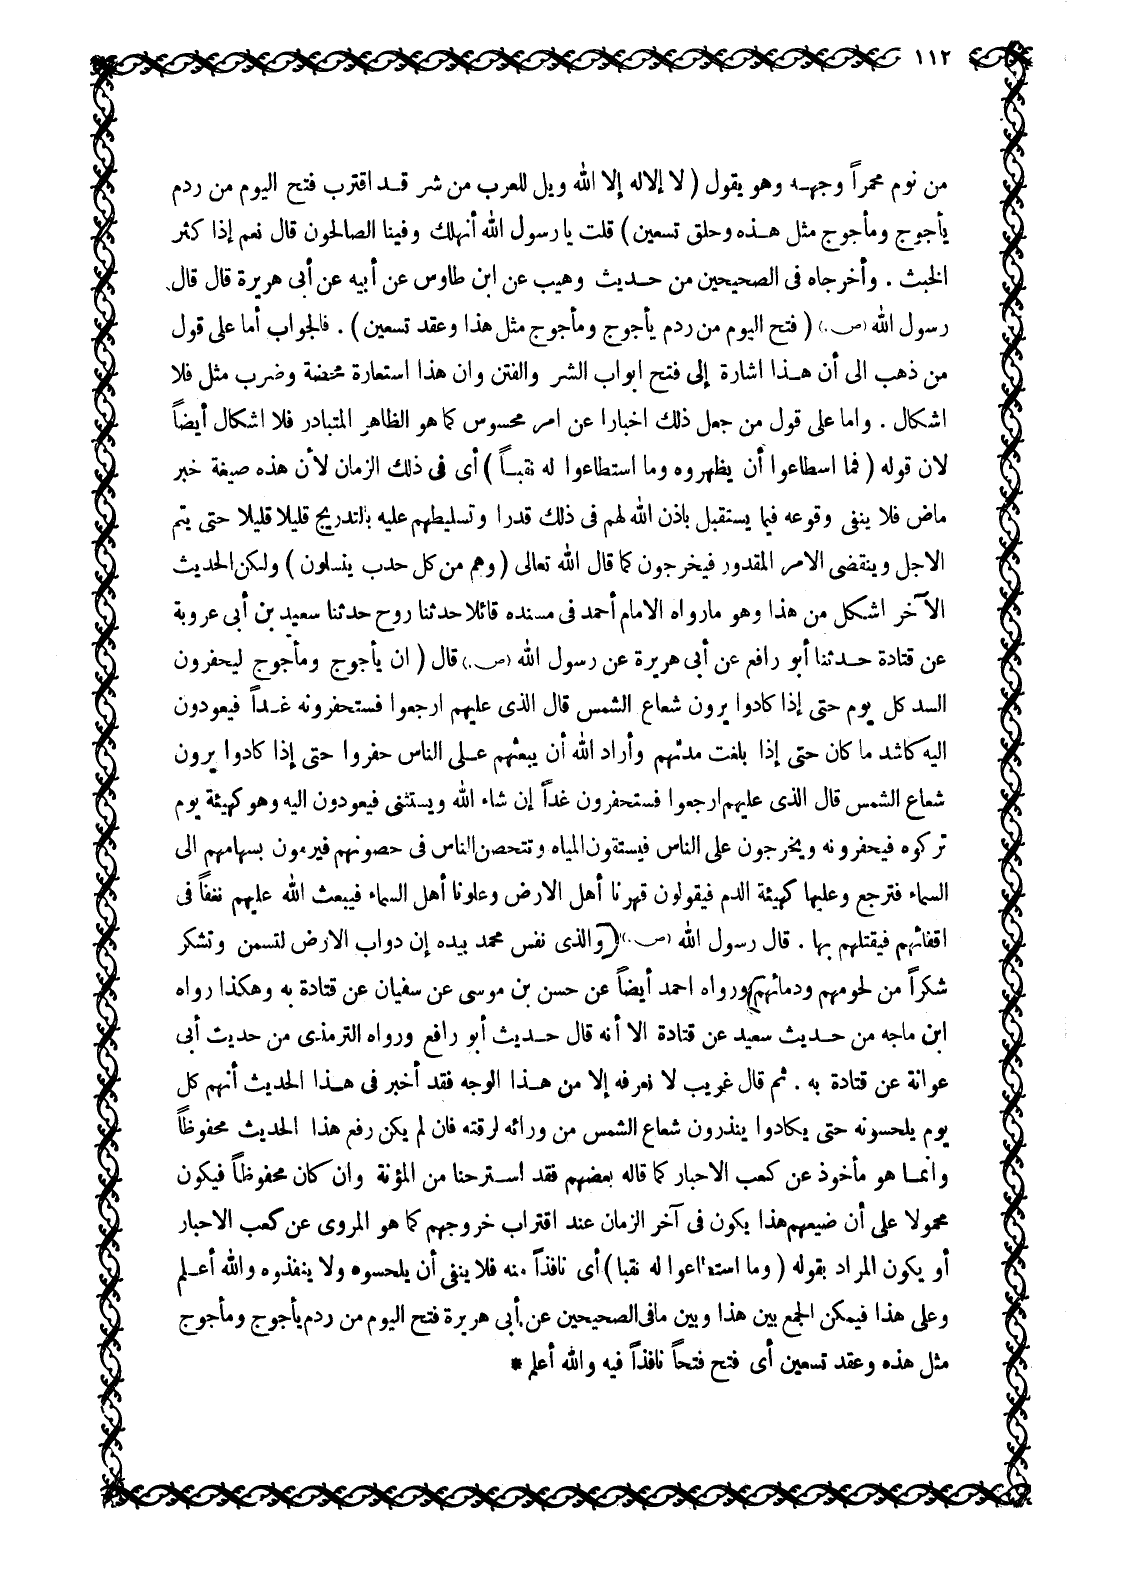 ١١٢
من نوم محمراً وجهه وهو يقول ( لا إلاله إلا الله ويل للعرب من شر قد اقترب فتح اليوم من ردم
يأجوج ومأجوج مثل هذه وحلق تسعين ) قلت يارسول الله أنهلك وفينا الصالحون قال نعم إذا كثر
الخبث . وأخرجاه فى الصحيحين من حديث وهيب عن ابن طاوس عن أبيه عن أبى هريرة قال قال
رسول الله (ص.) ( فتح اليوم من ردم يأجوج ومأجوج مثل هذا وعقد تسعين ) . فالجواب أما على قول
من ذهب الى أن هذا اشارة إلى فتح ابواب الشر والفتن وان هذا استعارة محضة وضرب مثل فلا
اشكال . واما على قول من جعل ذلك اخبارا عن امر محسوس كما هو الظاهر المتبادر فلا اشكال أيضاً
لان قوله ( فما اسطاعوا أن يظهروه وما استطاعوا له نقباً ) أى فى ذلك الزمان لأن هذه صيغة خبر
ماض فلا ينفى وقوعه فيما يستقبل باذن الله لهم فى ذلك قدرا وتسليطهم عليه بالتدريج قليلا قليلا حتى يتم
الاجل وينقضى الامر المقدور فيخرجون كما قال الله تعالى ( وهم من كل حدب ينسلون ) ولكن الحديث
الآخر اشكل من هذا وهو مارواه الامام أحمد فى مسنده قائلا حدثنا روح حدثنا سعيد بن أبى عروبة
عن قتادة حدثنا أبو رافع عن أبى هريرة عن رسول الله (ص.) قال ( ان يأجوج ومأجوج ليحفرون
السد كل يوم حتى إذا كادوا يرون شعاع الشمس قال الذى عليهم ارجعوا فستحفرونه غداً فيعودون
اليه كاشد ما كان حتى إذا بلغت مدتهم وأراد الله أن يبعثهم على الناس حفروا حتى إذا كادوا يرون
شعاع الشمس قال الذى عليهم ارجعوا فستحفرون غداً إن شاء الله ويستثنى فيعودون اليه وهو كهيئة يوم
تركوه فيحفرونه ويخرجون على الناس فيستقون المياه وتتحصن الناس فى حصونهم فيرمون بسهامهم الى
السماء فترجع وعليها كهيئة الدم فيقولون قهرنا أهل الارض وعلونا أهل السماء فيبعث الله عليهم نغفاً فى
اقفائهم فيقتلهم بها . قال رسول الله (ص.) (والذى نفس محمد بيده إن دواب الارض لتسمن وتشكر
شكراً من لحومهم ودمائهم) ورواه احمد أيضاً عن حسن بن موسى عن سفيان عن قتادة به وهكذا رواه
ابن ماجه من حديث سعيد عن قتادة الا أنه قال حديث أبو رافع ورواه الترمذى من حديث أبى
عوانة عن قتادة به . ثم قال غريب لا نعرفه إلا من هذا الوجه فقد أخبر فى هذا الحديث أنهم كل
يوم يلحسونه حتى يكادوا ينذرون شعاع الشمس من ورائه لرقته فان لم يكن رفع هذا الحديث محفوظاً
وانما هو مأخوذ عن كعب الاحبار كما قاله بعضهم فقد استرحنا من المؤنة وان كان محفوظاً فيكون
محمولا على أن ضيعهم هذا يكون فى آخر الزمان عند اقتراب خروجهم كما هو المروى عن كعب الاحبار
أو يكون المراد بقوله ( وما استطاعوا له نقبا ) أى نافذاً منه فلا ينفى أن يلحسوه ولا ينفذوه والله أعلم
وعلى هذا فيمكن الجمع بين هذا وبين مافى الصحيحين عن أبى هريرة فتح اليوم من ردم يأجوج ومأجوج
مثل هذه وعقد تسعين أى فتح فتحاً نافذاً فيه والله أعلم *